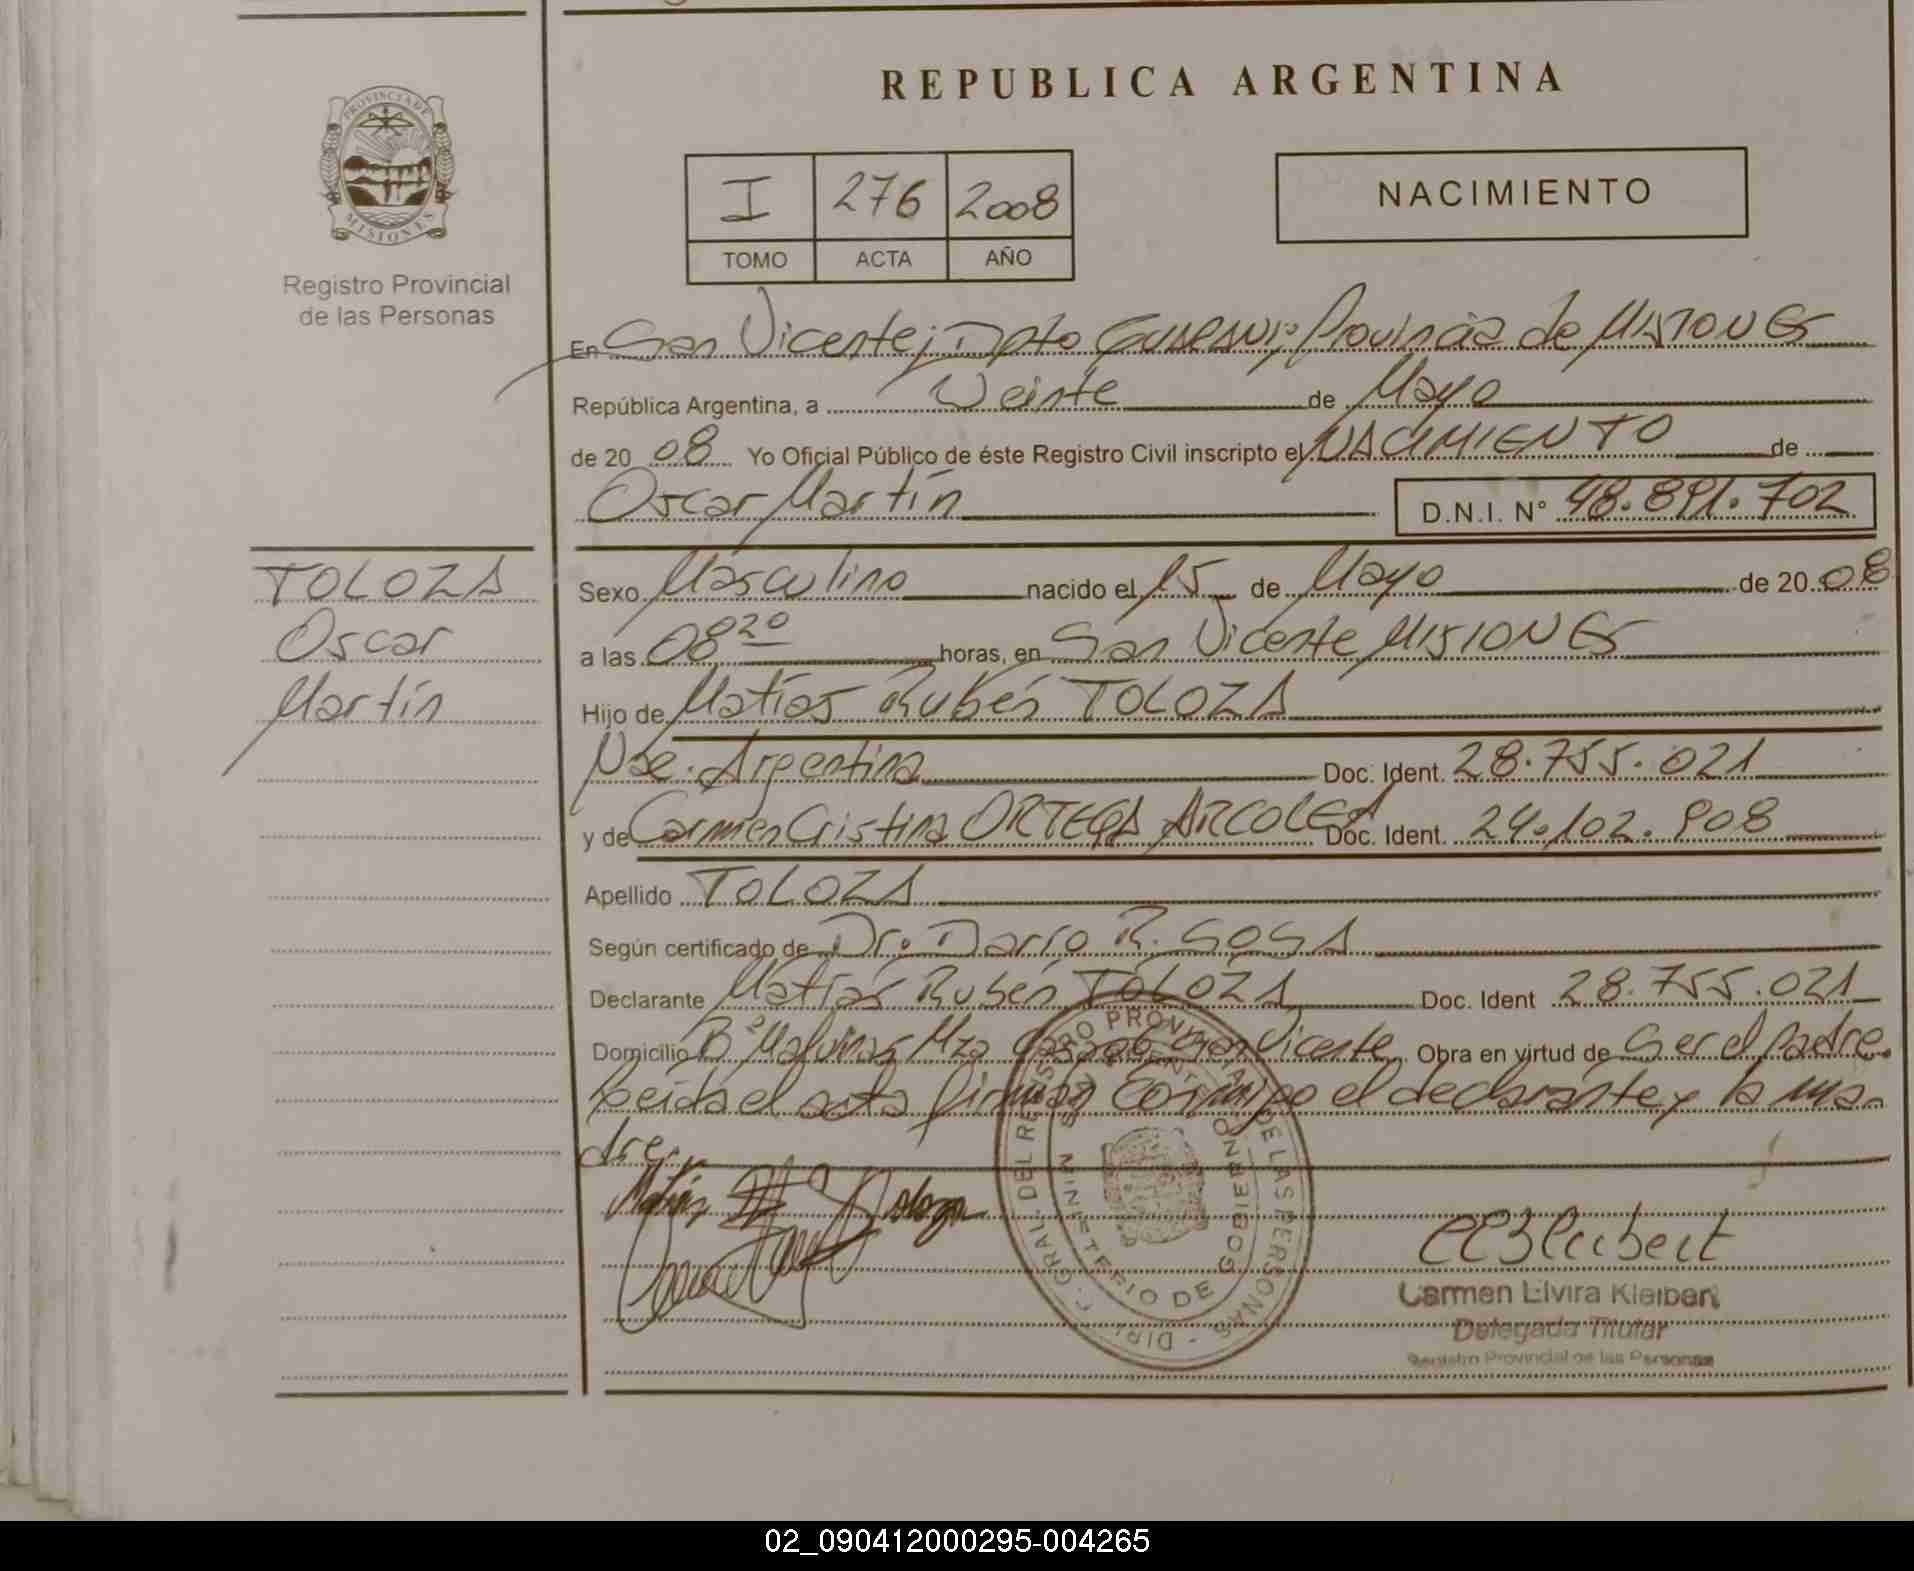 REPUBLICA ARGENTINA
PROVINCIA DE
MISIONES
Registro Provincial
de las Personas
I 276 2008
TOMO ACTA AÑO
NACIMIENTO
En San Vicente; Dpto GUARANI; Provincia de MISIONES
República Argentina, a Veinte de Mayo
de 20 08 Yo Oficial Público de éste Registro Civil inscripto el NACIMIENTO de
Oscar Martín D.N.I. N° 48.891.702
TOLOZA
Oscar
Martín
Sexo Masculino nacido el 15 de Mayo de 20 08
a las 08 20 horas, en San Vicente MISIONES
Hijo de Matías Rubén TOLOZA
Nac. Argentina Doc. Ident. 28.755.021
y de Carmen Cristina ORTEGA ARCOLEA Doc. Ident. 24.102.908
Apellido TOLOZA
Según certificado de Dr. Darío R. SOSA
Declarante Matías Rubén TOLOZA Doc. Ident 28.755.021
Domicilio B° Malvinas Mza San Vicente Obra en virtud de Ser el padre.
Leída el acta firman conmigo el declarante y la ma-
dre.
Matías Toloza
DIR. GRAL. DEL REGISTRO PROVINCIAL DE LAS PERSONAS
MINISTERIO DE GOBIERNO
CEKleibert
Carmen Elvira Kleibert
Delegada Titular
Registro Provincial de las Personas
02_090412000295-004265